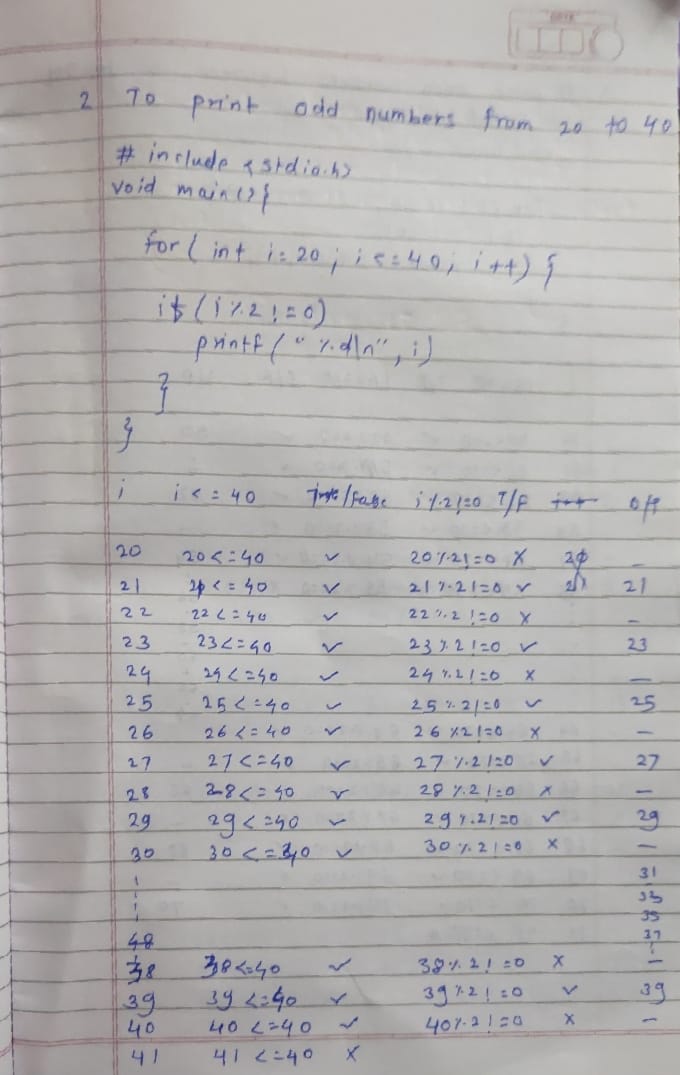 2 To print odd numbers from 20 to 40
# include <stdio.h>
void main(){
for( int i=20; i<=40; i++){
if(i%2!=0)
printf("%d\n", i)
}
}
i i<=40 True/False i%2!=0 T/F i++ o/p
20 20<=40 ✓ 20%2!=0 X –
21 21<=40 ✓ 21%2!=0 ✓ 21 21
22 22<=40 ✓ 22%2!=0 X –
23 23<=40 ✓ 23%2!=0 ✓ 23
24 24<=40 ✓ 24%2!=0 X –
25 25<=40 ✓ 25%2!=0 ✓ 25
26 26<=40 ✓ 26%2!=0 X –
27 27<=40 ✓ 27%2!=0 ✓ 27
28 28<=40 ✓ 28%2!=0 X –
29 29<=40 ✓ 29%2!=0 ✓ 29
30 30<=40 ✓ 30%2!=0 X –
31
33
35
48 37
38 38<=40 ✓ 38%2!=0 X –
39 39<=40 ✓ 39%2!=0 ✓ 39
40 40<=40 ✓ 40%2!=0 X –
41 41<=40 X